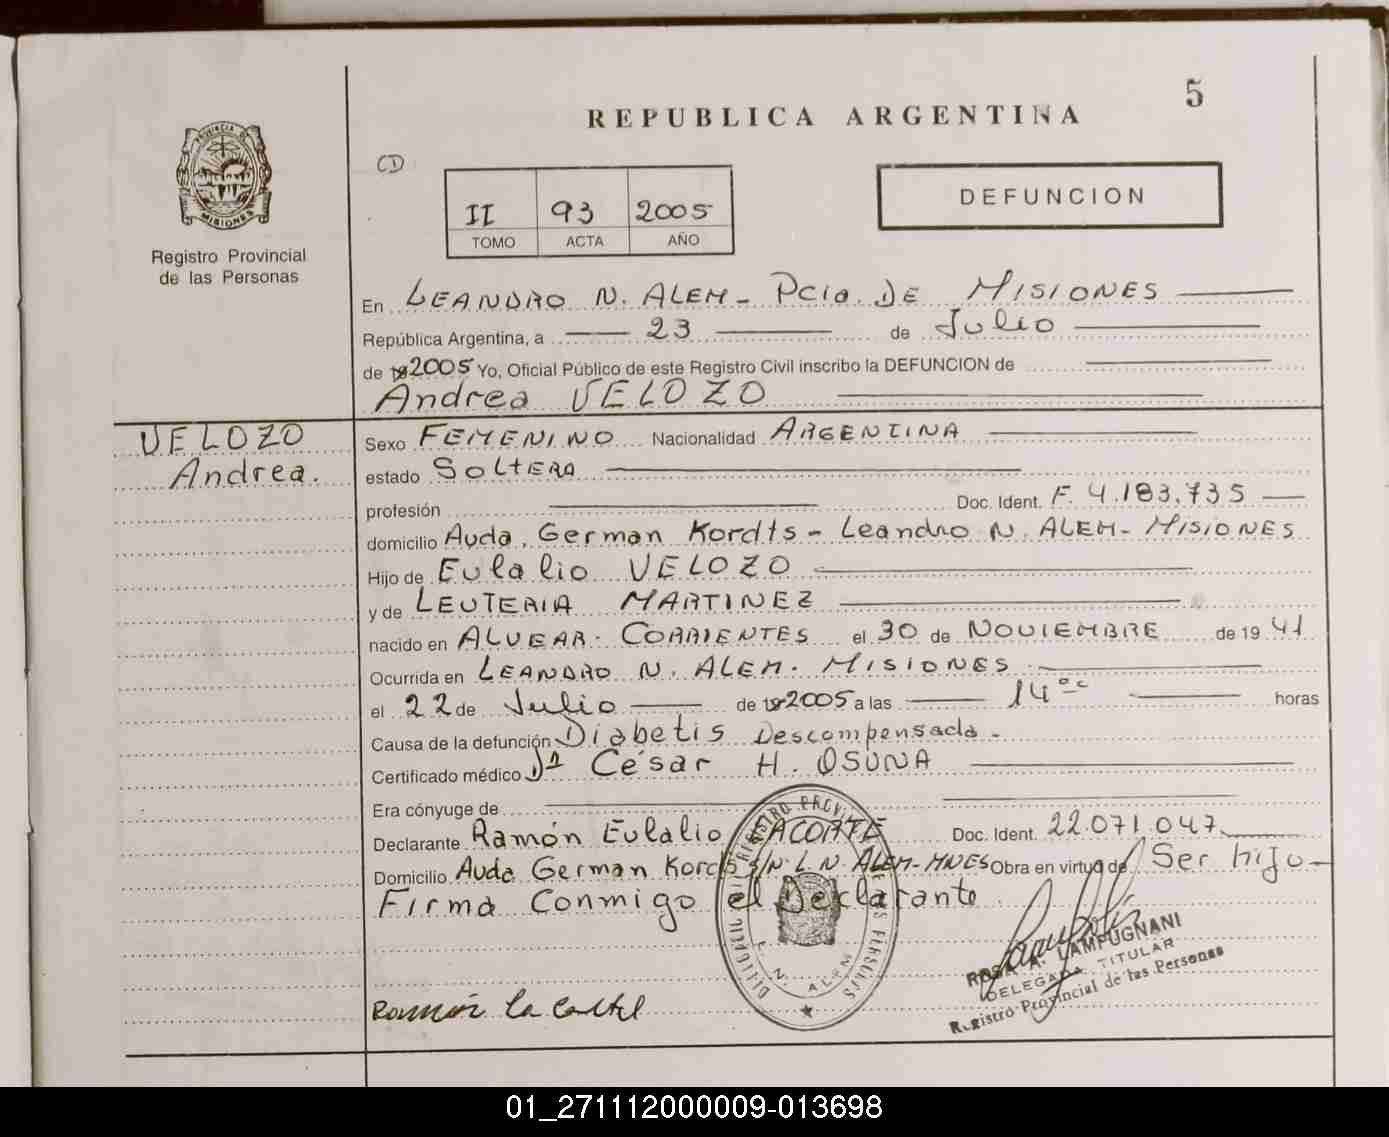 5
REPUBLICA ARGENTINA
PROVINCIA DE
MISIONES
Registro Provincial
de las Personas
CD
DEFUNCION
II 93 2005
TOMO ACTA AÑO
En LEANDRO N. ALEM - Pcia. DE MISIONES
República Argentina, a 23 de Julio
de 2005 Yo, Oficial Público de este Registro Civil inscribo la DEFUNCION de
Andrea VELOZO
VELOZO
Andrea.
Sexo FEMENINO Nacionalidad ARGENTINA
estado SOLTERA
profesión Doc. Ident. F. 4.183.735
domicilio Avda. German Kordts - Leandro N. ALEM - MISIONES
Hijo de Eulalio VELOZO
y de LEUTERIA MARTINEZ
nacido en ALVEAR - CORRIENTES el 30 de NOVIEMBRE de 19 41
Ocurrida en LEANDRO N. ALEM - MISIONES
el 22 de Julio de 2005 a las 14 horas
Causa de la defunción Diabetis Descompensada -
Certificado médico Dr César H. OSUNA
Era cónyuge de
Declarante Ramón Eulalio Doc. Ident. 22.071.047
Domicilio Avda German Kordts S/N - L. N. ALEM - MNES Obra en virtud de Ser hijo -
Firma Conmigo el Declarante
REGISTRO PROVINCIAL DE LAS PERSONAS
L. N. ALEM
ROSA A. LAMPUGNANI
DELEGADA TITULAR
Registro Provincial de las Personas
Ramón
01_271112000009-013698